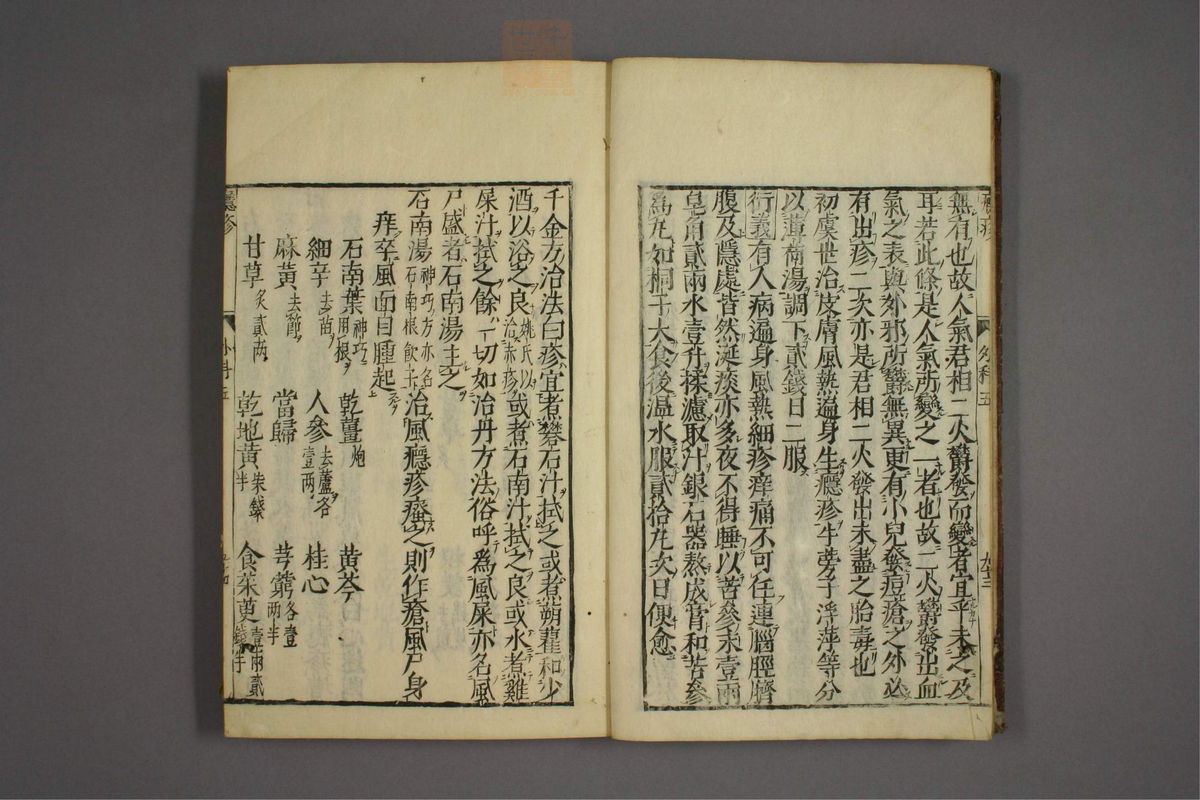 無有也故人氣君相二火欝發而變者宜乎未之及
耳若此條是人氣所變之一者也故二火欝發出而
氣之表與外邪所欝無異更有小兒發痘瘡之外必
有出疹一二次亦是君相二火發出未盡之胎毒也
初虞世治皮膚風熱遍身生癮疹牛蒡子浮萍等分
以薄荷湯調下貳錢日二服
衍義有人病遍身風熱細疹痒痛不可任連腦脛臍
腹及隱處皆然涎痰亦多夜不得睡以苦參末壹兩
皂角貳兩水壹升揉濾取汁銀石器熬成膏和苦參
為丸如桐子大食後温水服貳拾丸次日便愈
千金方治法曰疹宜煮礬石汁拭之或煮蒴藋和少
酒以浴之良姚氏以治赤疹或煮石南汁拭之良或水煮雞
屎汁拭之餘一切如治丹方法俗呼為風屎亦名風
尸盛者石南湯主之
石南湯神巧方亦名石南根飲子治風癮疹瘙之則作瘡風尸身
痒卒風面目腫起
石南葉神巧用根 乾薑炮 黄芩
細辛去苗 人參去蘆各壹兩 桂心
麻黄去節 當歸 芎藭各壹兩半
甘草炙貳兩 乾地黄半 食茱萸壹兩貳
癮疹 外科五